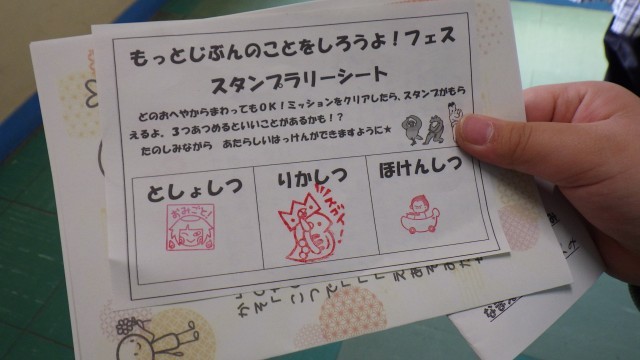 もっとじぶんのことをしろうよ！フェス
スタンプラリーシート
どのおへやからまわってもOK！ミッションをクリアしたら、スタンプがもら
えるよ。３つあつめるといいことがあるかも！？
たのしみながら　あたらしいはっけんができますように★
としょしつ
りかしつ
ほけんしつ
おみごと！